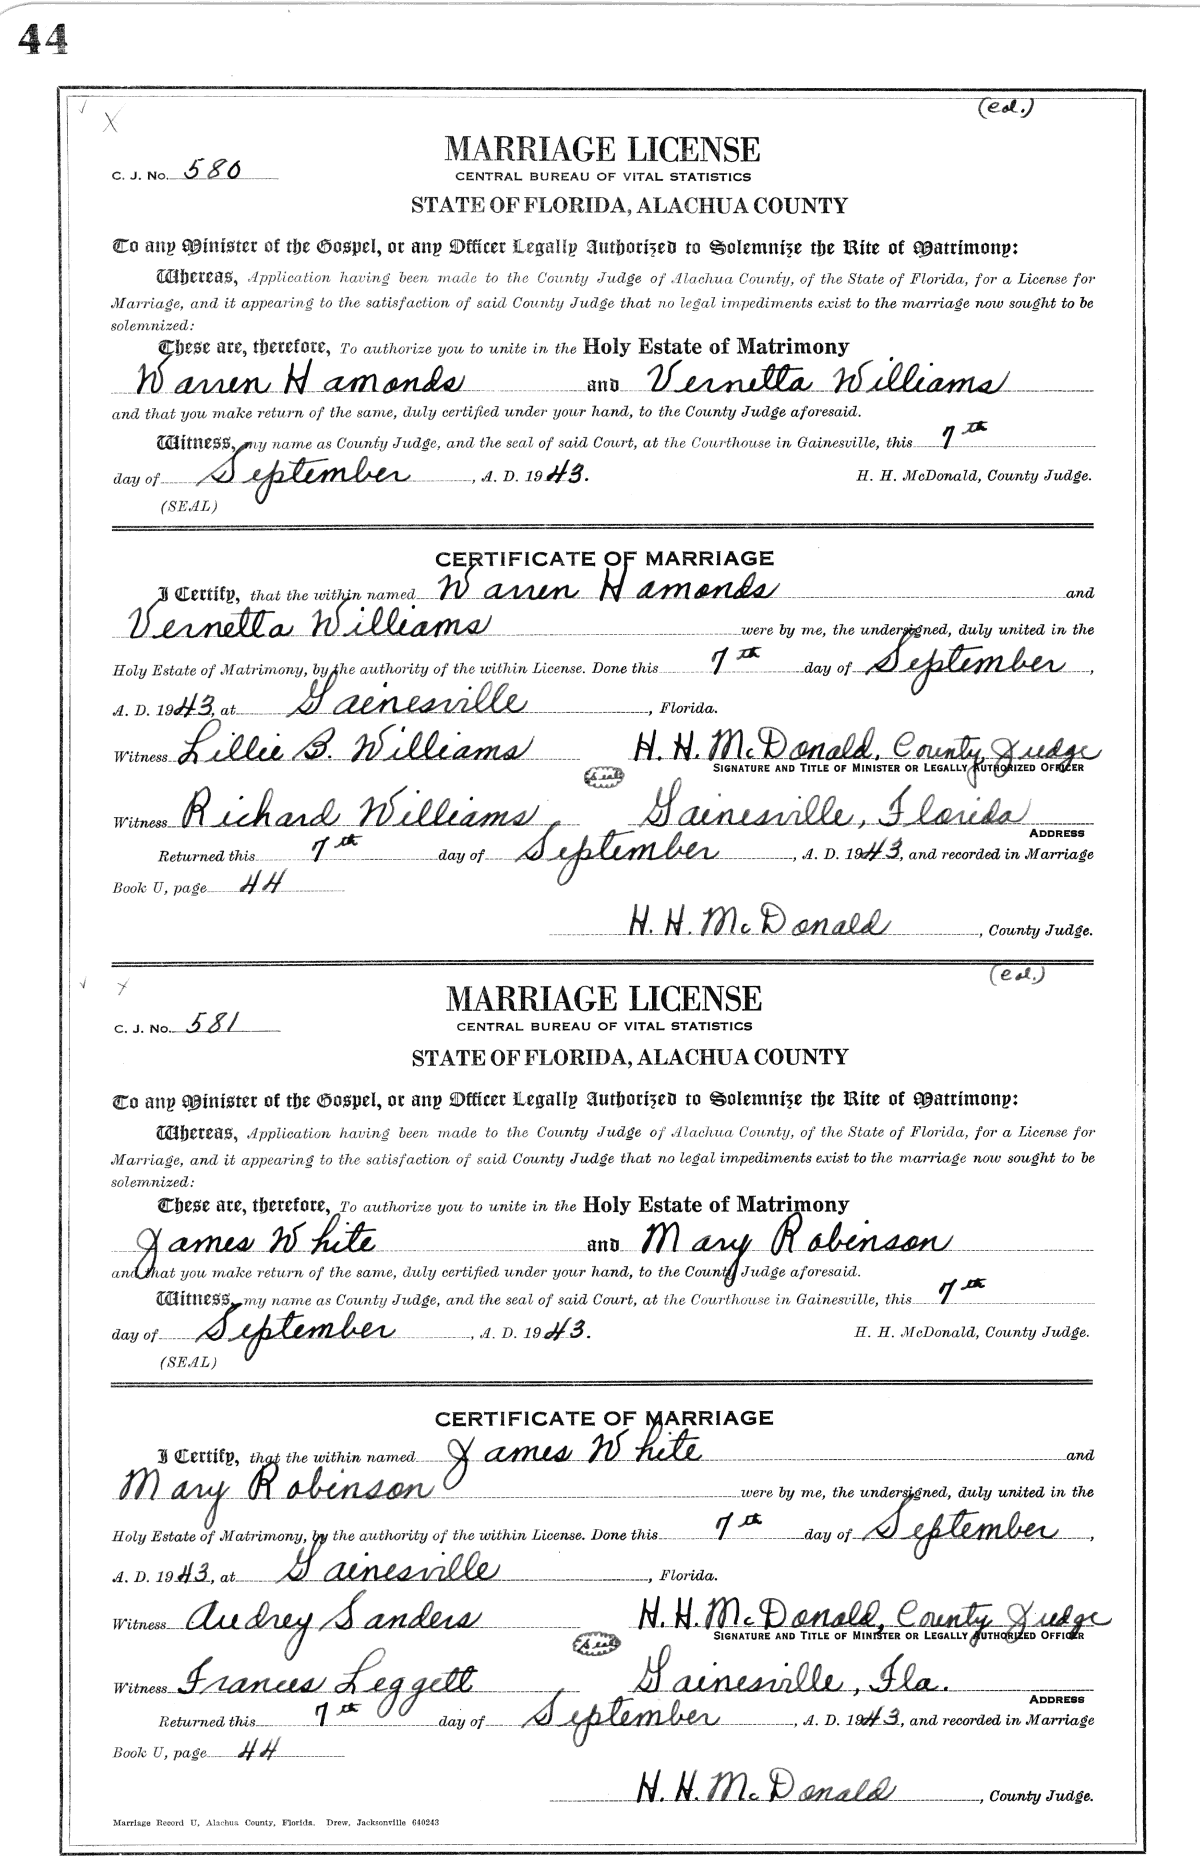 44
(col.)
X
MARRIAGE LICENSE
C. J. No. 580
CENTRAL BUREAU OF VITAL STATISTICS
STATE OF FLORIDA, ALACHUA COUNTY
To any Minister of the Gospel, or any Officer Legally Authorized to Solemnize the Rite of Matrimony:
Whereas, Application having been made to the County Judge of Alachua County, of the State of Florida, for a License for
Marriage, and it appearing to the satisfaction of said County Judge that no legal impediments exist to the marriage now sought to be
solemnized:
These are, therefore, To authorize you to unite in the Holy Estate of Matrimony
Warren Hamonds and Vernetta Williams
and that you make return of the same, duly certified under your hand, to the County Judge aforesaid.
Witness, my name as County Judge, and the seal of said Court, at the Courthouse in Gainesville, this 7th
day of September, A. D. 1943. H. H. McDonald, County Judge.
(SEAL)
CERTIFICATE OF MARRIAGE
I Certify, that the within named Warren Hamonds and
Vernetta Williams were by me, the undersigned, duly united in the
Holy Estate of Matrimony, by the authority of the within License. Done this 7th day of September,
A. D. 1943, at Gainesville, Florida.
Witness Lillie B. Williams H. H. McDonald, County Judge
SIGNATURE AND TITLE OF MINISTER OR LEGALLY AUTHORIZED OFFICER
Seal
Witness Richard Williams Gainesville, Florida
ADDRESS
Returned this 7th day of September, A. D. 1943, and recorded in Marriage
Book U, page 44
H. H. McDonald, County Judge.
(col.)
X
MARRIAGE LICENSE
C. J. No. 581
CENTRAL BUREAU OF VITAL STATISTICS
STATE OF FLORIDA, ALACHUA COUNTY
To any Minister of the Gospel, or any Officer Legally Authorized to Solemnize the Rite of Matrimony:
Whereas, Application having been made to the County Judge of Alachua County, of the State of Florida, for a License for
Marriage, and it appearing to the satisfaction of said County Judge that no legal impediments exist to the marriage now sought to be
solemnized:
These are, therefore, To authorize you to unite in the Holy Estate of Matrimony
James White and Mary Robinson
and that you make return of the same, duly certified under your hand, to the County Judge aforesaid.
Witness, my name as County Judge, and the seal of said Court, at the Courthouse in Gainesville, this 7th
day of September, A. D. 1943. H. H. McDonald, County Judge.
(SEAL)
CERTIFICATE OF MARRIAGE
I Certify, that the within named James White and
Mary Robinson were by me, the undersigned, duly united in the
Holy Estate of Matrimony, by the authority of the within License. Done this 7th day of September,
A. D. 1943, at Gainesville, Florida.
Witness Audrey Sanders H. H. McDonald, County Judge
SIGNATURE AND TITLE OF MINISTER OR LEGALLY AUTHORIZED OFFICER
Seal
Witness Frances Leggett Gainesville, Fla.
ADDRESS
Returned this 7th day of September, A. D. 1943, and recorded in Marriage
Book U, page 44
H. H. McDonald, County Judge.
Marriage Record U, Alachua County, Florida. Drew, Jacksonville 640243